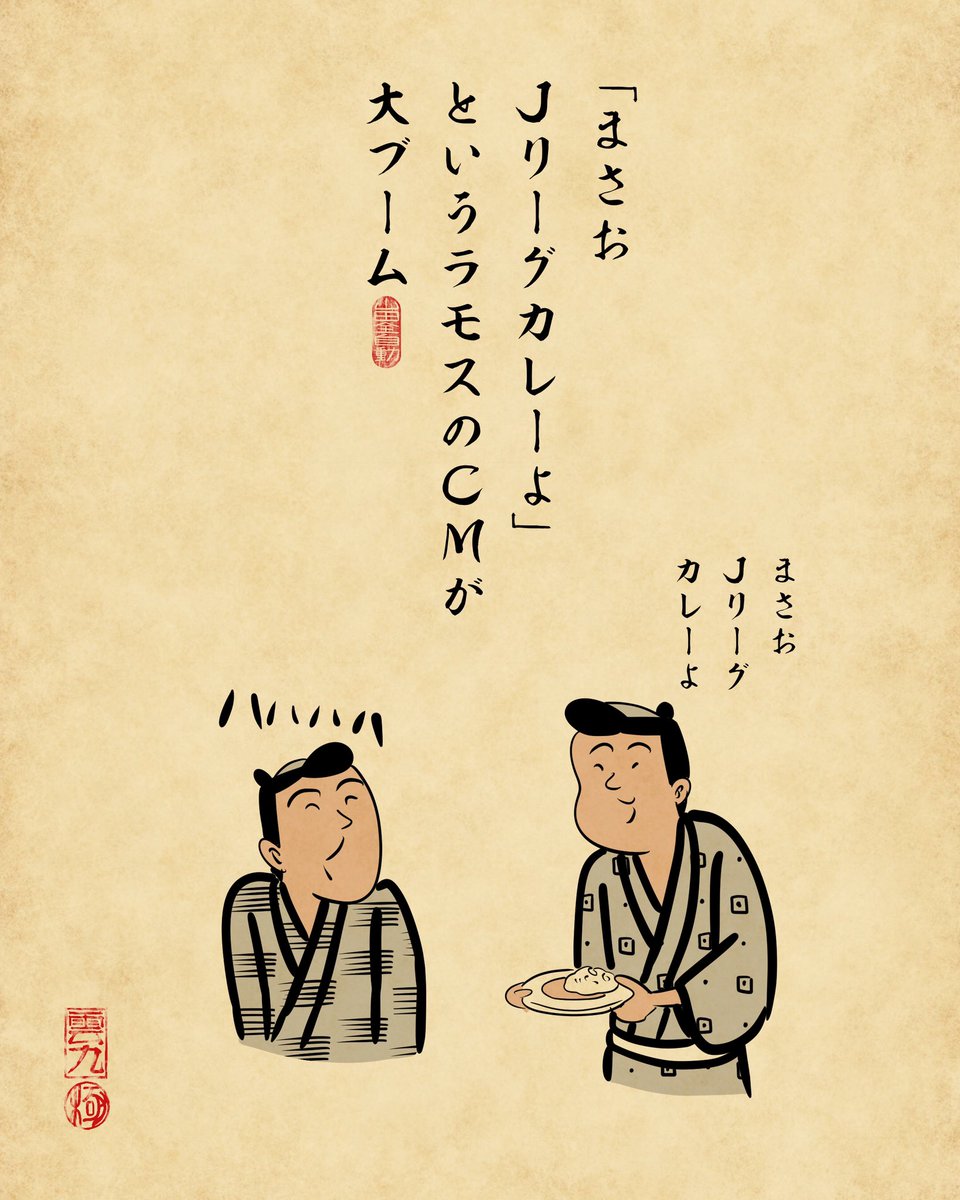 「まさお
Jリーグカレーよ」
というラモスのCMが
大ブーム
まさお
Jリーグ
カレーよ
ハハハハ